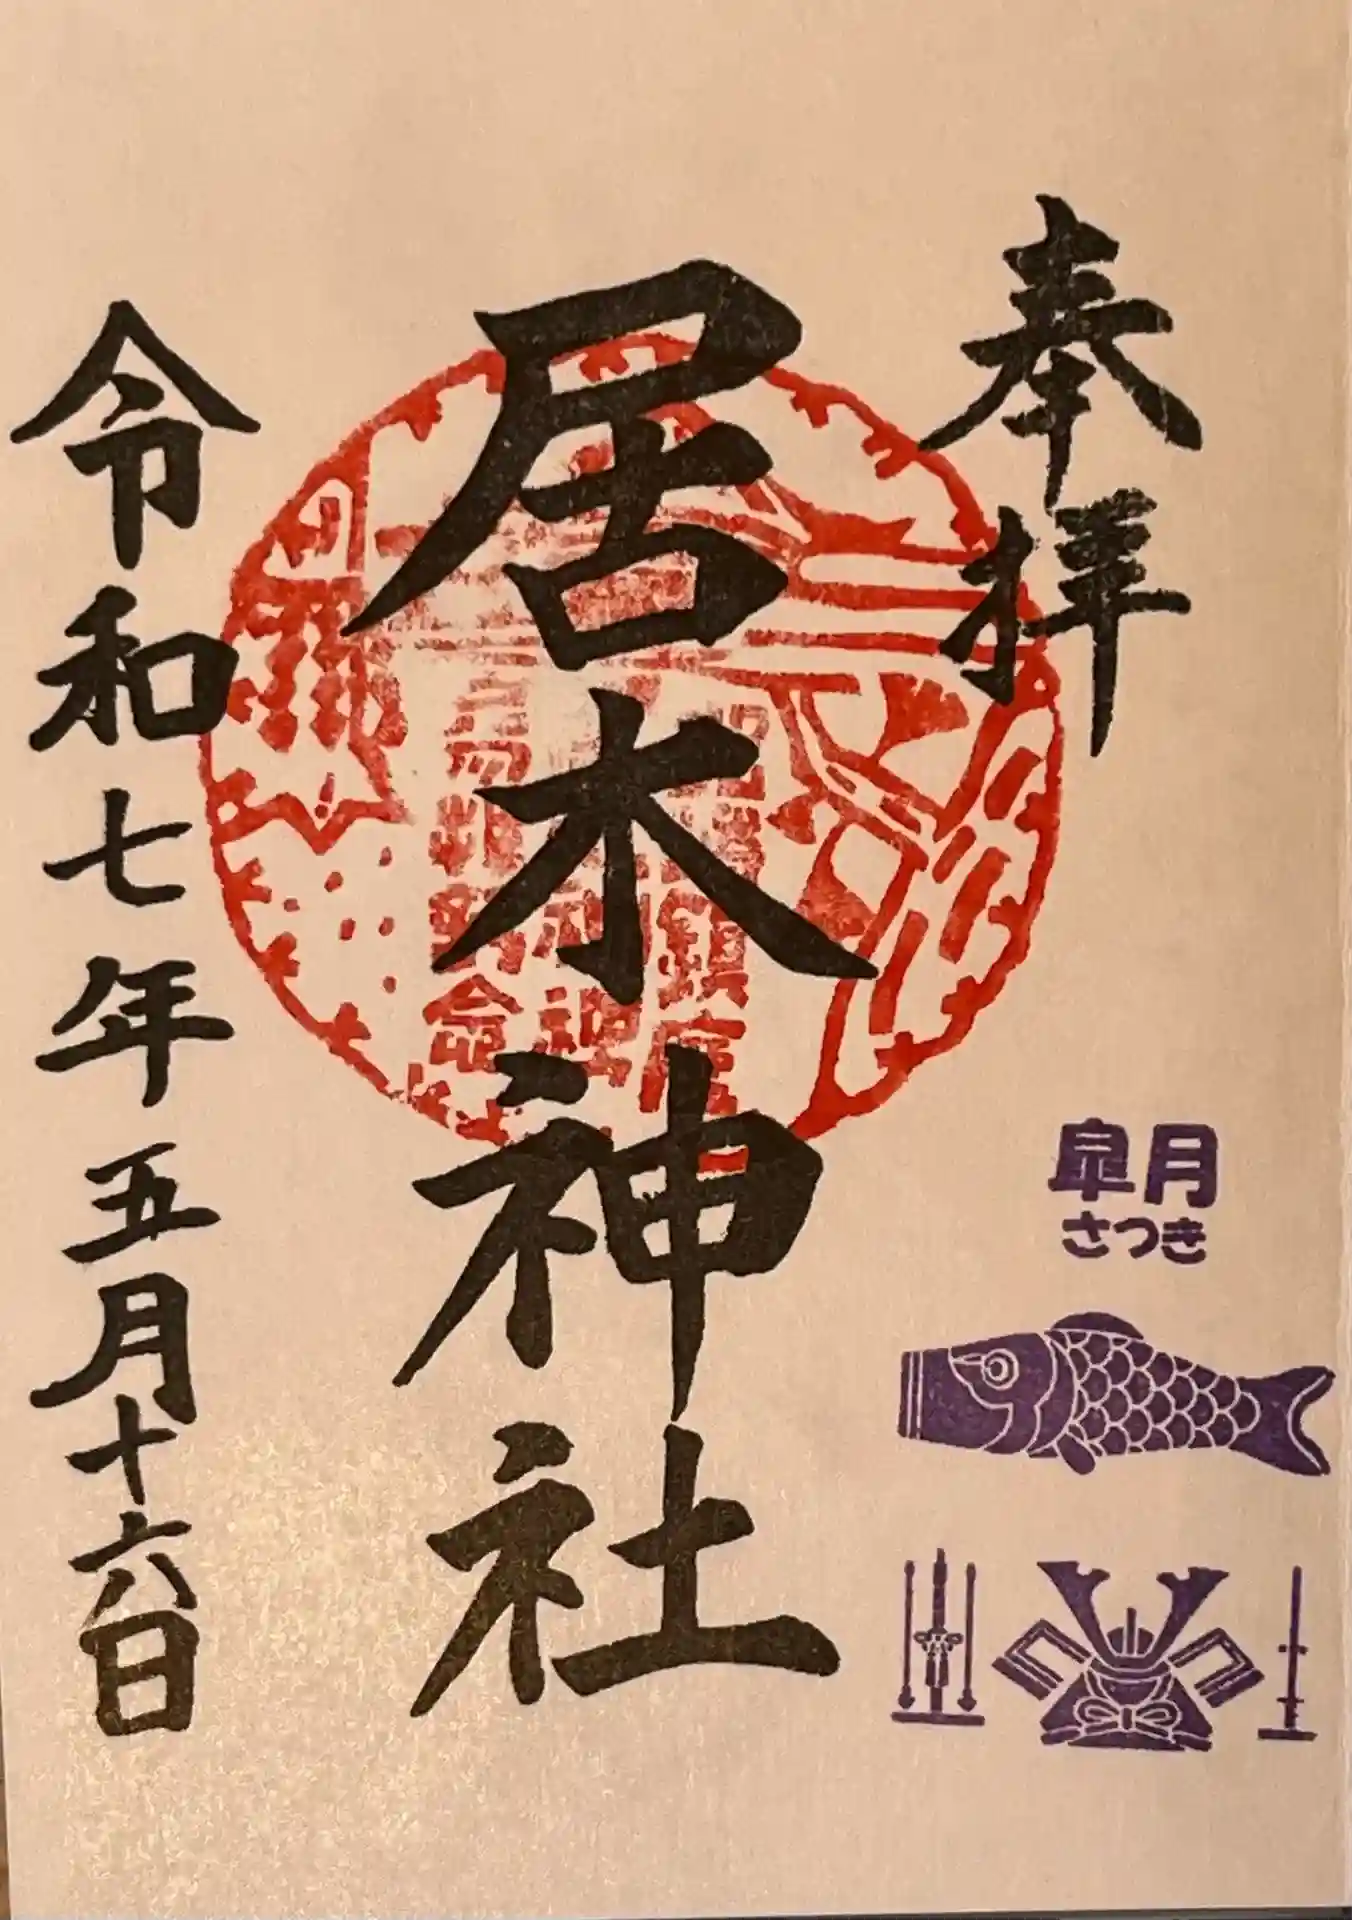 奉拝
居木神社
令和七年五月十六日
皐月
さつき